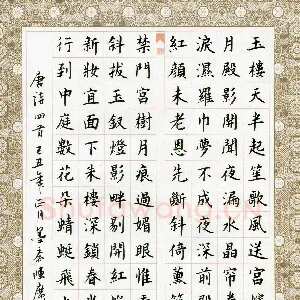 玉樓天半起笙歌風送宮
月殿影開聞夜漏水晶帘
淚濕羅巾夢不成夜深前
紅顏未老恩先斷斜倚薰
禁門宮樹月痕過媚眼惟
斜拔玉釵燈影畔剔開紅
新妝宜面下朱樓深鎖春
行到中庭數花朵蜻蜓飛
唐詩四首己丑年